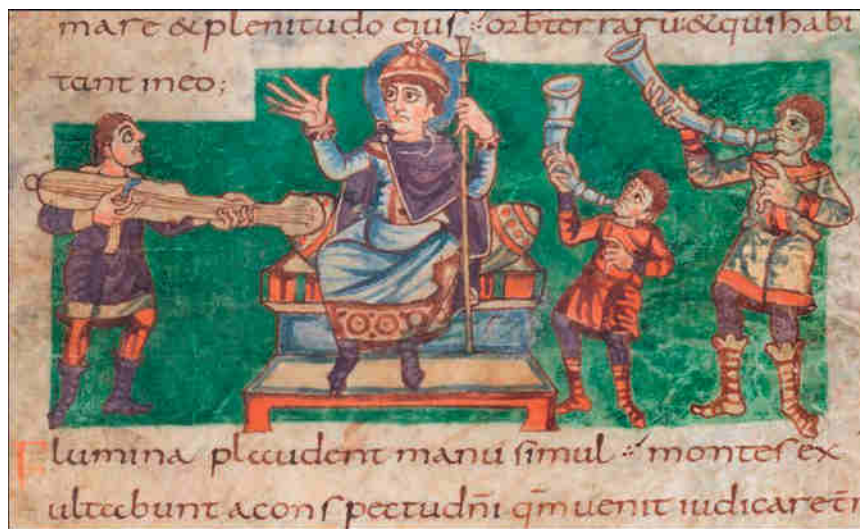 mare & plenitudo eius · orbter rarũ & qui habi
tant in eo;
Flumina plaudent manu simul · montes ex
ultabunt a conspectu dñi qm̃ uenit iudicare t̃r